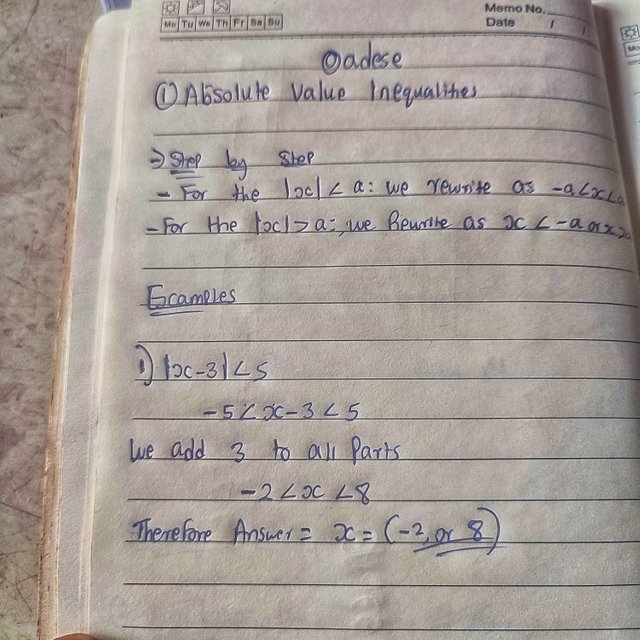 Memo No.
Mo Tu We Th Fr Sa Su
Date / /
Oadese
① Absolute Value Inequalities
⇒ Step by Step
- For the |x| < a: we rewrite as -a<x<a
- For the |x| > a:, we Rewrite as x < -a or x>
Examples
1) |x-3| < 5
-5 < x-3 < 5
We add 3 to all Parts
-2 < x < 8
Therefore Answer = x = (-2, or 8)
Mo